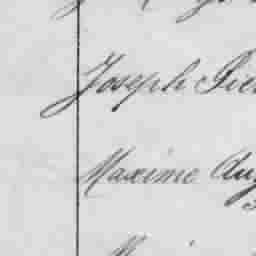 Joseph Pier
Maxime Aug